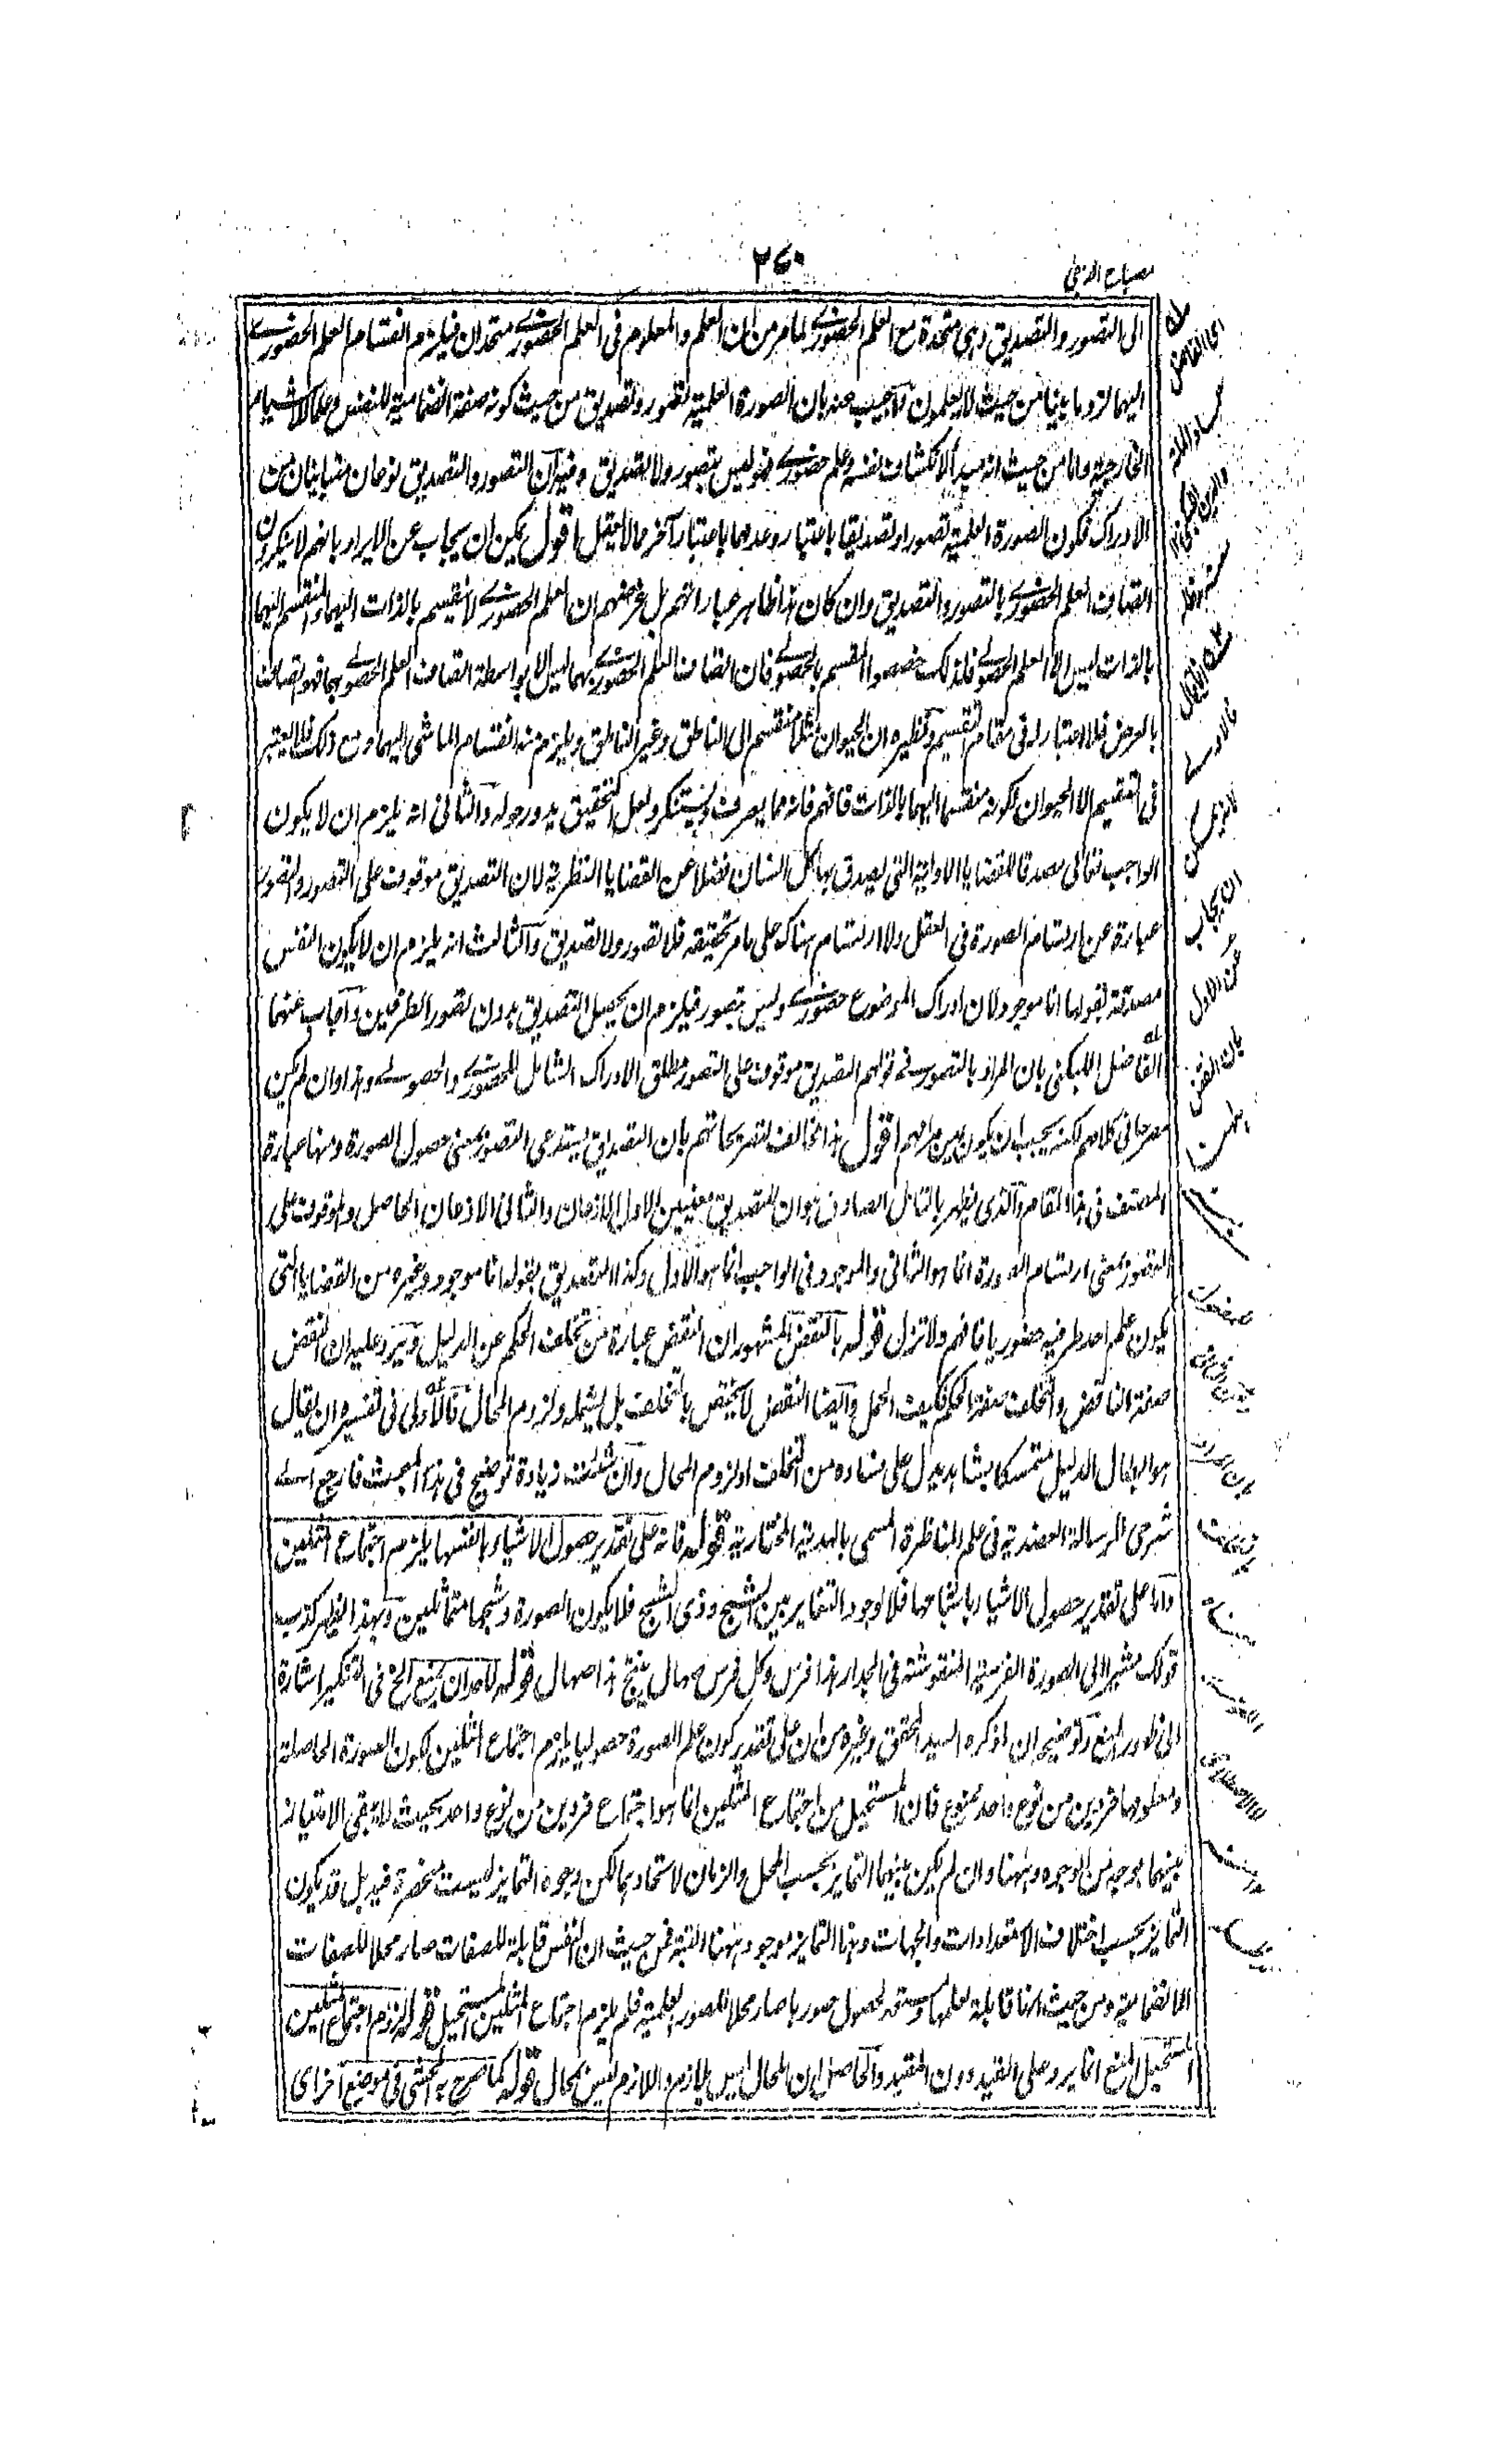 ٢٦٠
مصباح الدجى
الى التصور والتصديق وهى متحدة مع العلم الحضورى لما مر من ان العلم والمعلوم فى العلم الحضورى متحدان فيلزم انقسام العلم الحضورى
اليهما لزوما بينا من حيث لا يعلمون وآجيب عنه بان الصورة العلمية تصور وتصديق من حيث كونه صفة انضمامية للنفس وعلما لاشياء
الخارجية واما من حيث انه مبدأ لانكشاف نفسه وعلم حضورى فهو ليس بتصور ولا بتصديق وفيه ان التصور والتصديق نوعان متباينان من
الادراك فكون الصورة العلمية تصورا وتصديقا باعتبار وعدمها باعتبار آخر مما لا يعقل اقول يمكن ان يجاب عن الايراد بانهم لا ينكرون
اتصاف العلم الحضورى بالتصور والتصديق وان كان هذا ظاهر عباراتهم بل غرضهم ان العلم الحضورى لا ينقسم بالذات اليهما والمنقسم اليهما
بالذات ليس الا العلم الحصولى فلذلك خصصوا المقسم بالحصولى فان اتصاف العلم الحضورى بهما ليس الا بواسطة اتصاف العلم الحصولى بهما فهو اتصاف
بالعرض فلا اعتبار له فى مقام التقسيم ونظيره ان الحيوان مثلا منقسم الى الناطق وغير الناطق ويلزم منه انقسام الماشى اليهما ومع ذلك فلا يعتبر
فى التقسيم الا الحيوان لكونه منقسما اليهما بالذات فافهم فانه مما يعرف ويستنكر ولعل التحقيق يدور حوله والثانى انه يلزم ان لا يكون
الواجب تعالى مصدقا للقضايا الاولية التى يصدق بها كل انسان فضلا عن القضايا النظرية لان التصديق موقوف على التصور والتصور
عبارة عن ارتسام الصورة فى العقل ولا ارتسام هناك على ما مر تحقيقه فلا تصور ولا تصديق والثالث انه يلزم ان لا يكون النفس
مصدقة بقولها انا موجود لان ادراك الموضوع حضورى وليس بتصور فيلزم ان يحصل التصديق بدون تصور الطرفين وآجاب عنهما
الفاضل اللبكنى بان المراد بالتصور فى قولهم التصديق موقوف على التصور مطلق الادراك الشامل للحضورى والحصولى وهذا وان لم يكن
مصرحا فى كلامهم لكنه يجب ان يكون مرامهم اقول هذا مخالف لتصريحاتهم بان التصديق يستدعى التصور بمعنى حصول الصورة ومنها عبارة
المصنف فى هذا المقام والذى يظهر بالتامل الصادق هو ان للتصديق معنيين الاول الاذعان والثانى الاذعان الحاصل والموقوف على
التصور بمعنى ارتسام الصورة انما هو الثانى والموجود فى الواجب انما هو الاول وكذا التصديق بقولها انا موجود وغيره من القضايا التى
يكون علم احد طرفيه حضوريا فافهم ولا تزل قوله بالنقض المشهور ان النقض عبارة عن تخلف الحكم عن الدليل ويرد عليه ان النقض
صفة الناقض والتخلف صفة الحكم فكيف الحمل وآيضا النقض لا يختص بالتخلف بل يشمله ولزوم المحال فالاولى فى تفسيره ان يقال
هو ابطال الدليل متمسكا بشاهد يدل على فساده من التخلف او لزوم المحال وآن شئت زيادة توضيح فى هذا المبحث فارجع الى
شرحى الرسالة العضدية فى علم المناظرة المسمى بالهدية المختارية قوله فانه على تقدير حصول الاشياء بانفسها يلزم اجتماع المثلين
واما على تقدير حصول الاشياء باشباحها فلا لوجود التغاير بين الشبح وذى الشبح فلا يكون الصورة وشبحها متماثلين وبهذا يظهر كذب
قولك مشيرا الى الصورة الفرسية المنقوشة فى الجدار هذا فرس وكل فرس صهال ينتج هذا صهال قوله لاحد ان يمنع الخ فى التنكير اشارة
الى ظهور المنع وتوضيحه ان ما ذكره السيد المحقق وغيره من ان على تقدير كون علم الصورة حصوليا يلزم اجتماع المثلين لكون الصورة الحاصلة
ومعلومها فردين من نوع واحد ممنوع فان المستحيل من اجتماع المثلين انما هو اجتماع فردين من نوع واحد بحيث لا يبقى الامتياز
بينهما بوجه من الوجوه وههنا وان لم يكن بينهما التمايز بحسب المحل والزمان لاتحادهما لكن وجوه التمايز ليست منحصرة فيه بل قد يكون
التمايز بحسب اختلاف الاستعدادات والجهات وهذا التمايز موجود ههنا البتة فمن حيث ان النفس قابلة للصفات صار محلا للصفات
الانضمامية ومن حيث انها قابلة لعلمها ومستعد لحصول صورها صار محلا للصور العلمية فلم يلزم اجتماع المثلين المستحيل قوله لزوم اجتماع المثلين
المستحيل المنع انما يرد على القيد دون المقيد والحاصل ان المحال ليس بلازم واللازم ليس بمحال قوله كما صرح به المحشى فى موضع آخر اى
اى الفاضل
ان يجاب
عن الاول
بان النفس